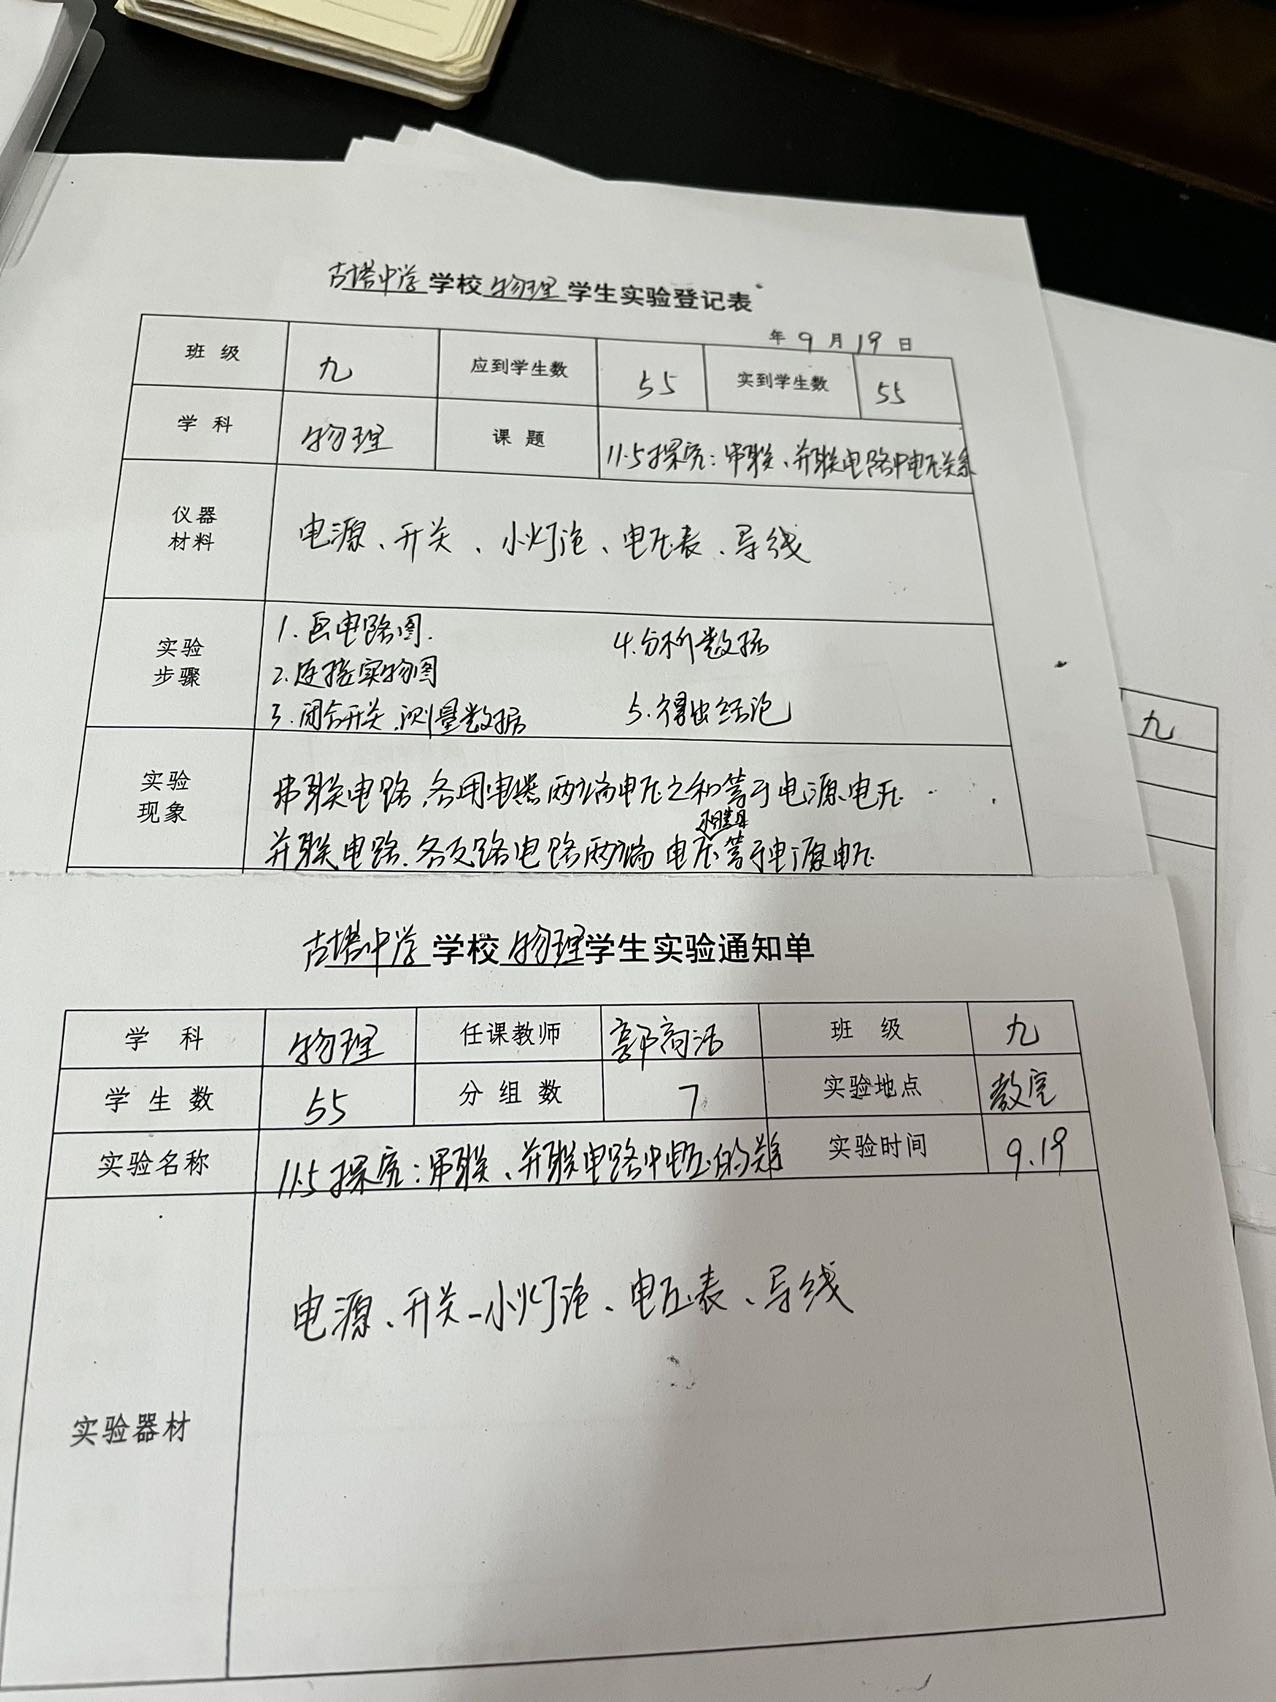 古塔中学学校物理学生实验登记表
年9月19日
班级 九 应到学生数 55 实到学生数 55
学科 物理 课题 11.5探究：串联、并联电路中电压关系
仪器材料 电源、开关、小灯泡、电压表、导线
实验步骤
1.画电路图. 4.分析数据
2.连接实物图
3.闭合开关,测量数据 5.得出结论
实验现象
串联电路,各用电器两端电压之和等于电源电压
并联电路.各支路电路两端电压等于电源电压
九
古塔中学学校物理学生实验通知单
学科 物理 任课教师 班级 九
学生数 55 分组数 7 实验地点 教室
实验名称 11.5探究：串联、并联电路中电压的关系 实验时间 9.19
实验器材 电源、开关、小灯泡、电压表、导线